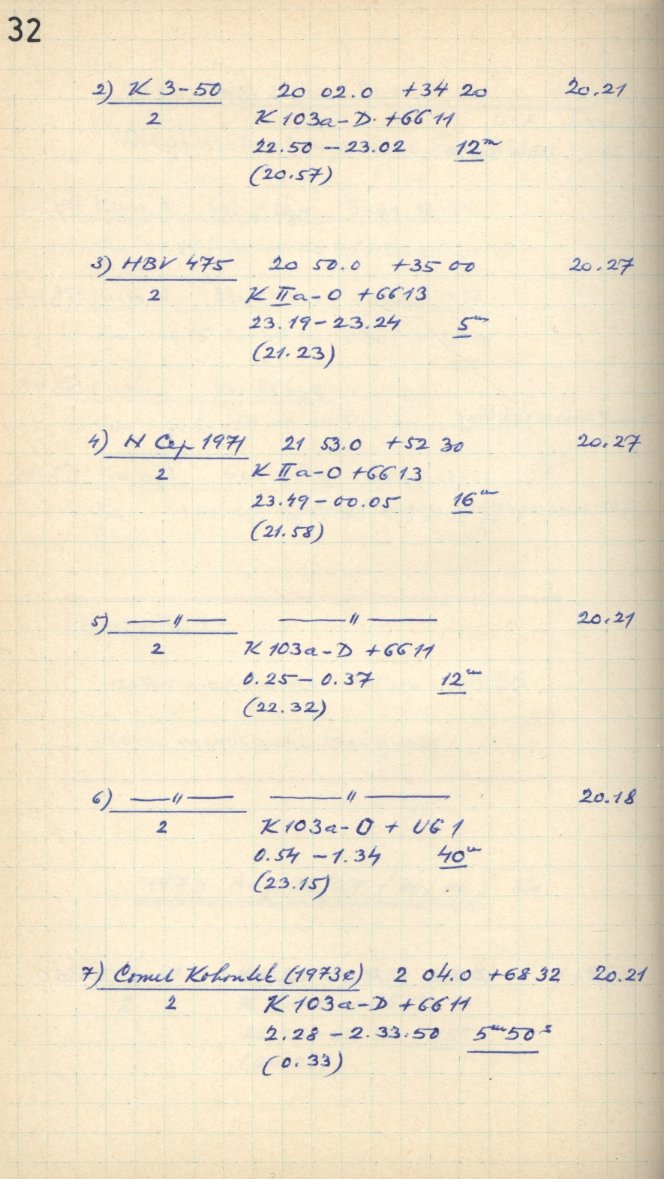 32
2) K 3-50 20 02.0 +34 20 20.21
2 K 103a-D. +GG 11
22.50 - 23.02 12ᵐ
(20.57)
3) HBV 475 20 50.0 +35 00 20.27
2 K IIa-O +GG 13
23.19-23.24 5ᵐ
(21.23)
4) N Cep 1971 21 53.0 +52 30 20.27
2 K IIa-O +GG 13
23.49-00.05 16ᵐ
(21.58)
5) —"— —"— 20.21
2 K 103a-D +GG 11
0.25 - 0.37 12ᵐ
(22.32)
6) —"— —"— 20.18
2 K103a-O + UG 1
0.54 - 1.34 40ᵐ
(23.15)
7) Comet Kohoutek (1973e) 2 04.0 +68 32 20.21
2 K 103a-D +GG 11
2.28 - 2.33.50 5ᵐ50ˢ
(0.33)